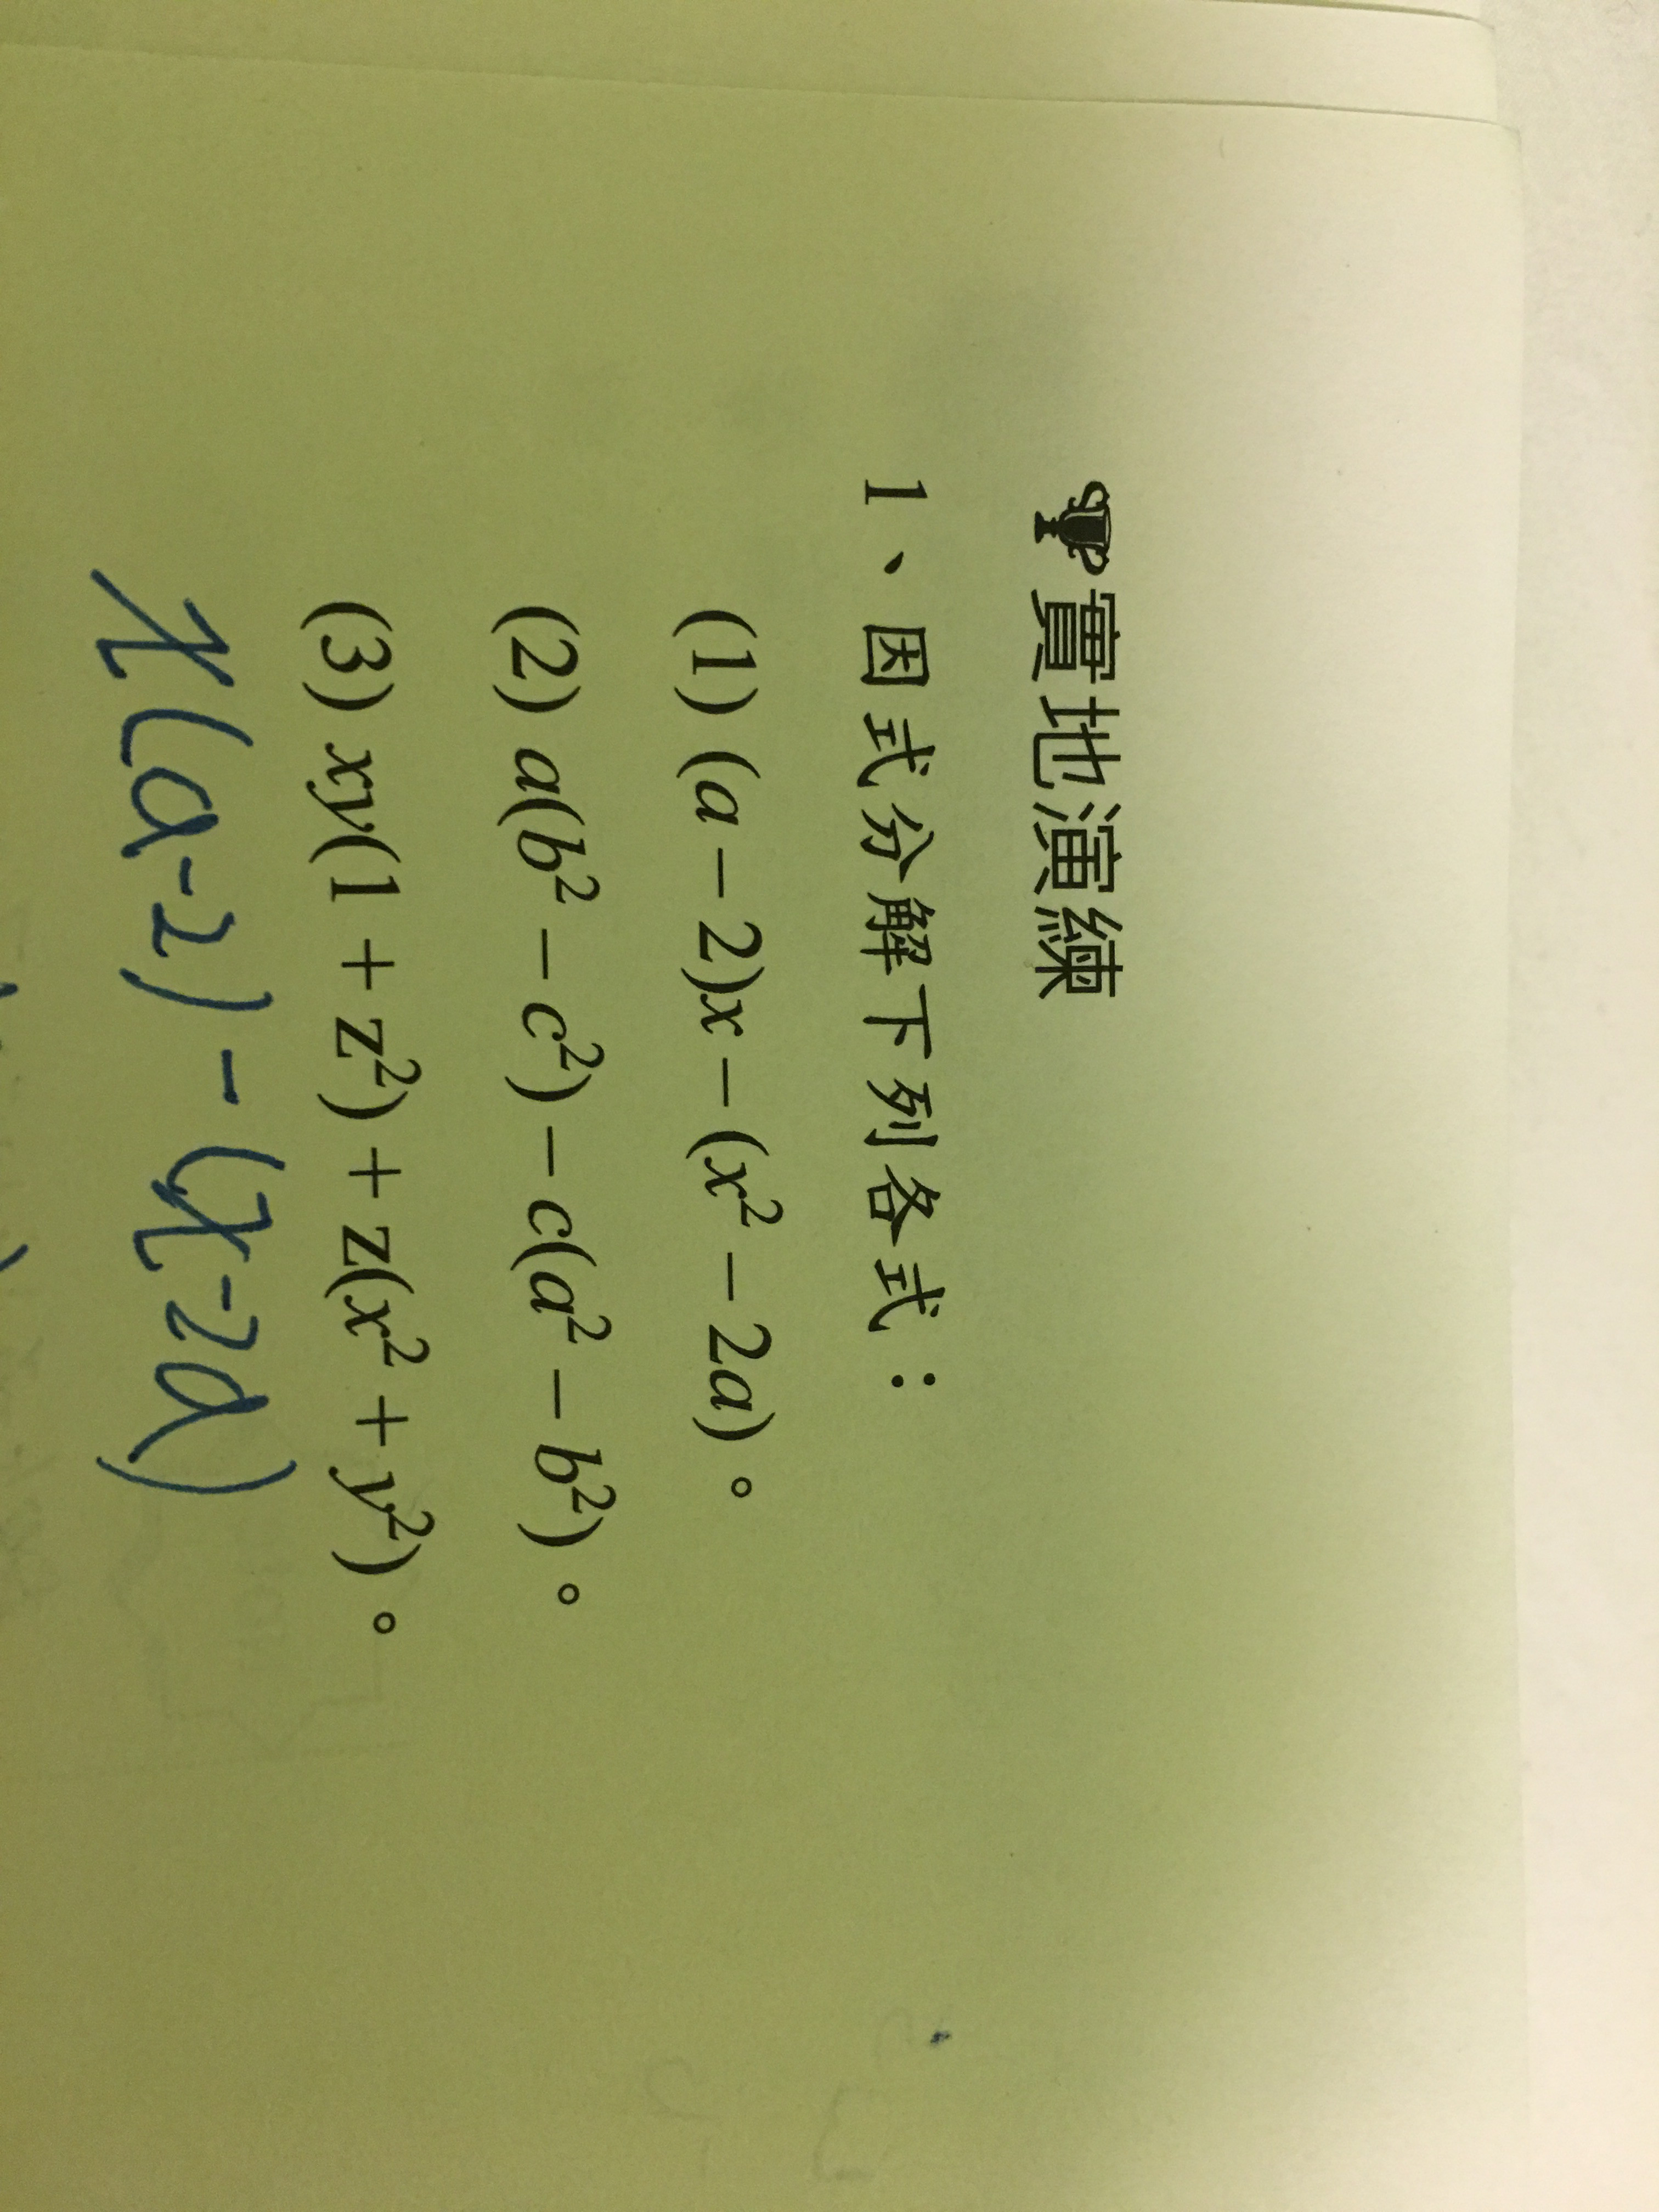 實地演練
1、因式分解下列各式：
(1) (a − 2)x − (x² − 2a)。
(2) a(b² − c²) − c(a² − b²)。
(3) xy(1 + z²) + z(x² + y²)。
x(a-2) - (x-2a)